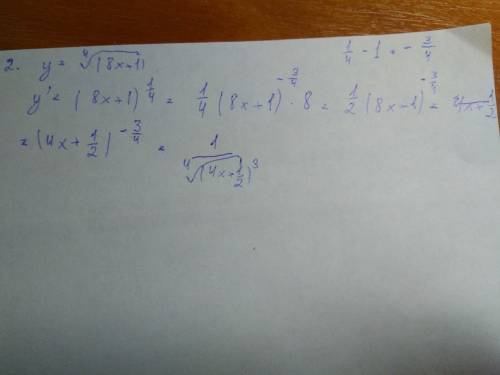 2. y = ∜(8x+1)    1/4 - 1 = - 3/4
y' = (8x+1)^(1/4) = 1/4 (8x+1)^(-3/4) · 8 = 1/2 (8x+1)^(-3/4) =
= (4x + 1/2)^(-3/4) = 1/∜((4x+1/2)^3)